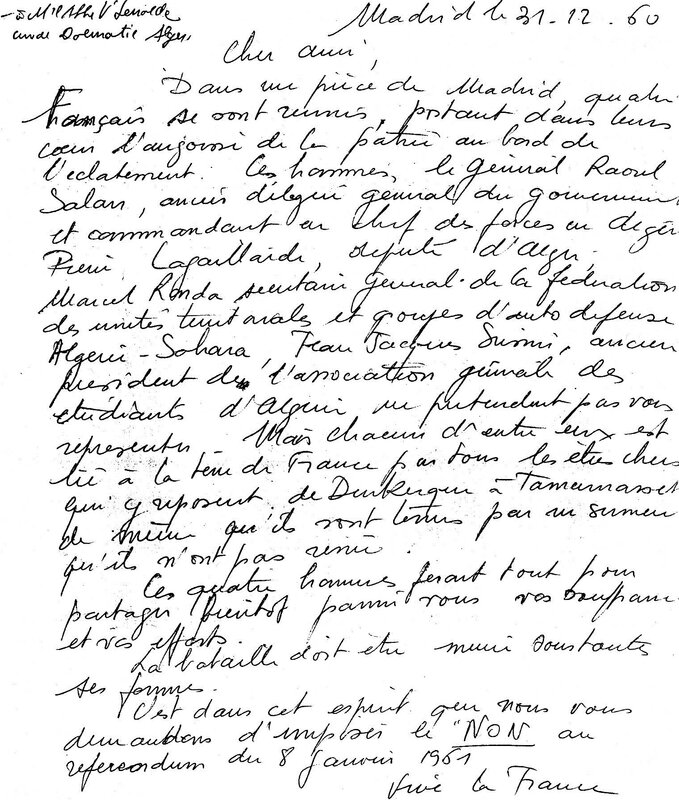 Madrid le 31-12-60
Cher ami,
Dans une pièce de Madrid, quatre
Français se sont réunis, portant dans leurs
cœur l'angoisse de la patrie au bord de
l'eclatement. Ces hommes, le Général Raoul
Salan, ancien délégué general du gouvernement
et commandant en chef des forces en Algérie
Pierre Lagaillarde, député d'Alger,
Marcel Ronda secretaire General de la fédération
des unités territoriales et groupes d'auto defense
Algerie-Sahara, Jean Jacques Susini, ancien
president de l'association générale des
etudiants d'Algerie ne prétendent pas vous
representer. Mais chacun d'entre eux est
lié à la terre de France par tous les êtres chers
qui y reposent de Dunkerque à Tamanrasset
de même qu'ils sont tenus par un serment
qu'ils n'ont pas renié.
Ces quatre hommes feront tout pour
partager bientôt parmi vous vos souffrances
et vos efforts.
La bataille doit être menée sous toutes
ses formes.
C'est dans cet esprit que nous vous
demandons d'imposer le "NON au
referendum du 8 Janvier 1961
Vive la France